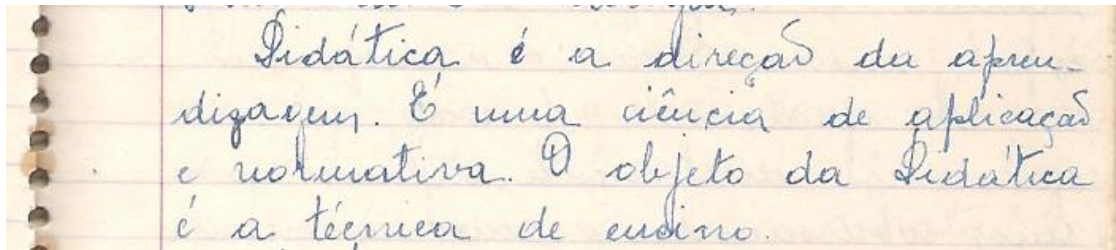 Didática é a direção da apren-
dizagem. É uma ciência de aplicação
e normativa. O objeto da Didática
é a técnica de ensino.